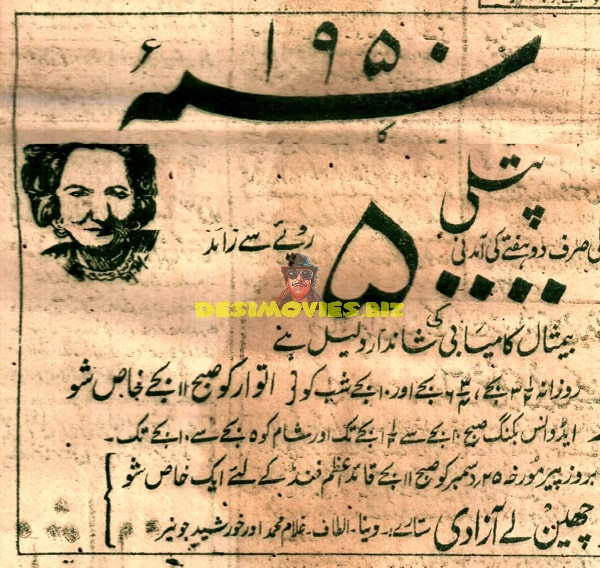 سنہ ۱۹۵۰ء
کا
پتلی
کی صرف دو ہفتے کی آمدنی ۵۰۰۰۰ روپے سے زائد
DESIMOVIES.BIZ
بیمثال کامیابی کی شاندار دلیل ہے
روزانہ ½۳ بجے، ¾۶ بجے اور ۱۰ بجے شب کو { اتوار کو صبح ۱۱ بجے خاص شو
ایڈوانس بکنگ صبح ۱۰ بجے سے بجے تک اور شام کو ۵ بجے سے ۱۰ بجے تک۔
بروز پیر مورخہ ۲۵ دسمبر کو صبح ۱۱ بجے قائد اعظم فنڈ کے لئے ایک خاص شو
چھین لے آزادی ستارے:۔ وینا۔ الطاف۔ غلام محمد اور خورشید جونیر